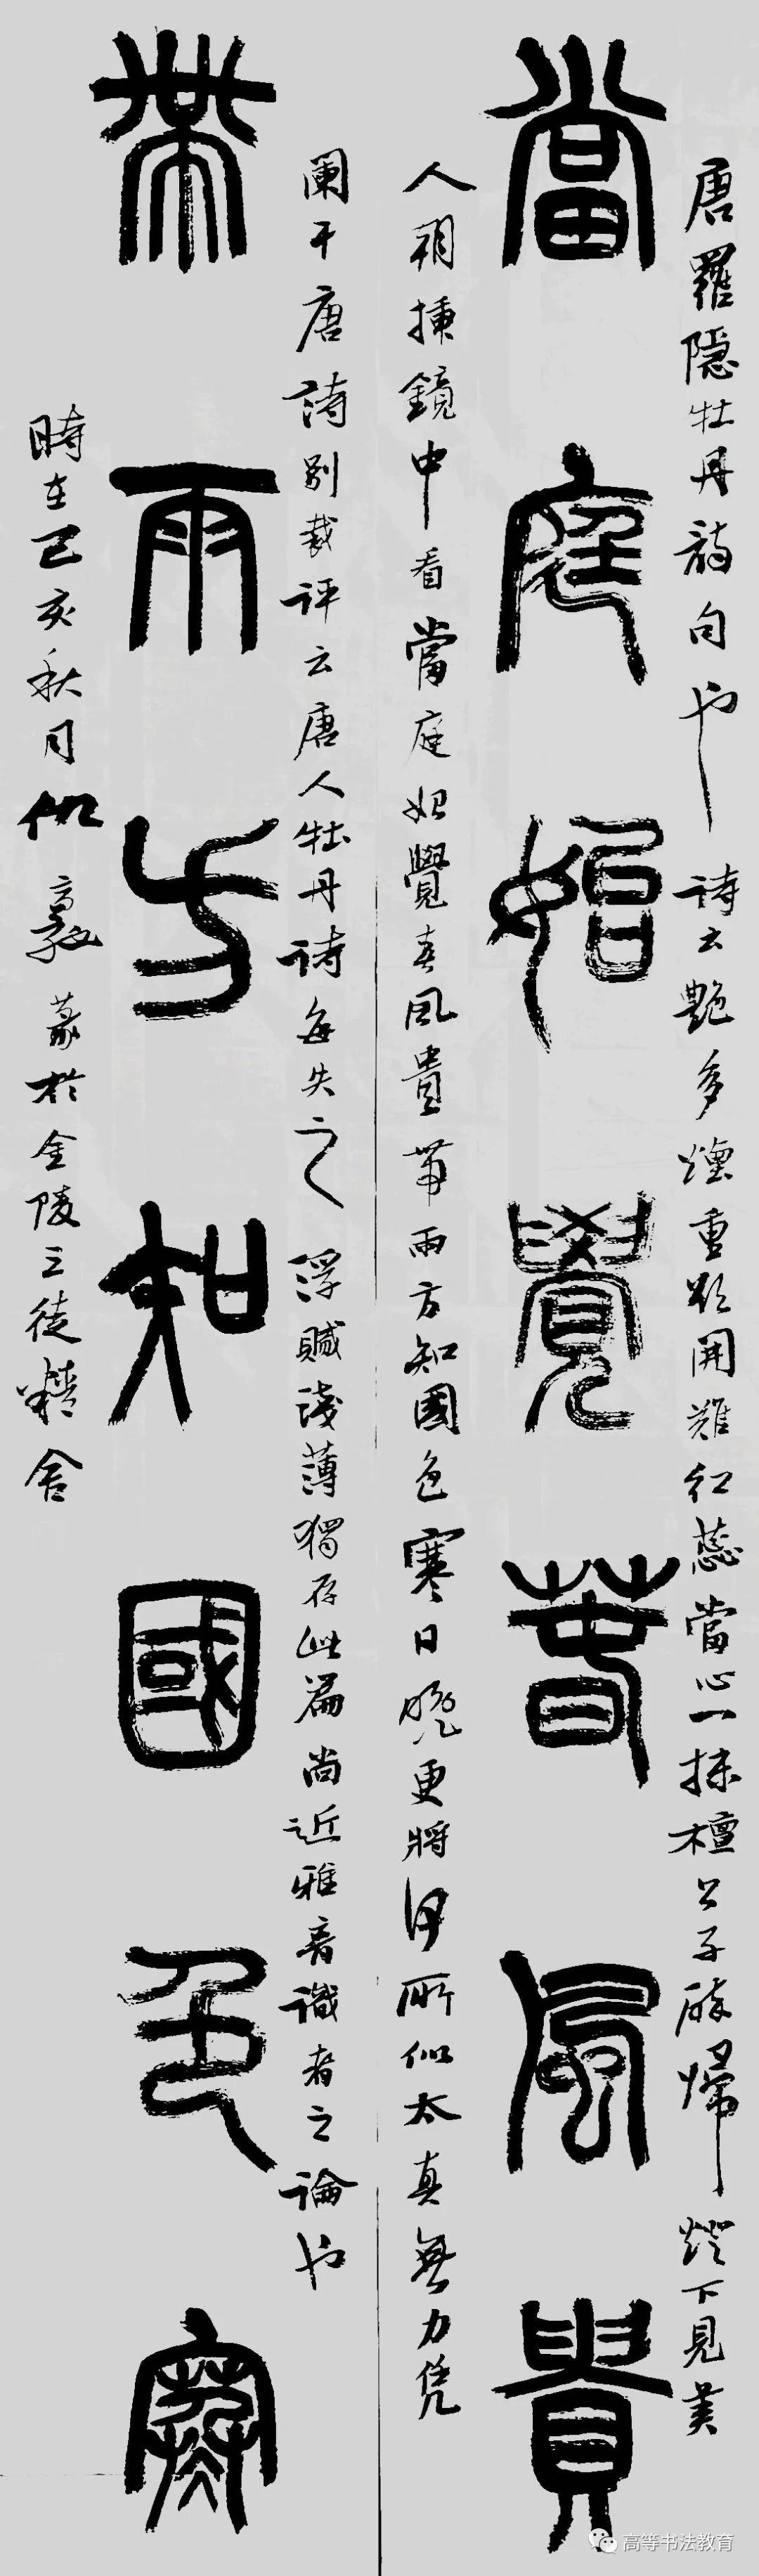 當庭始覺春風貴
帶雨方知國色寒
唐羅隱牡丹詩句也 詩云艷多煙重欲開難紅蕊當心一抹檀公子醉歸燈下見美
人朝插鏡中看當庭始覺春風貴帶雨方知國色寒日晚更將何所似太真無力凭
闌干唐詩別裁評云唐人牡丹詩每失之浮膩淺薄獨存此篇尚近雅音識者之論也
時在己亥秋月仇敦篆於金陵三徒精舍
高等书法教育